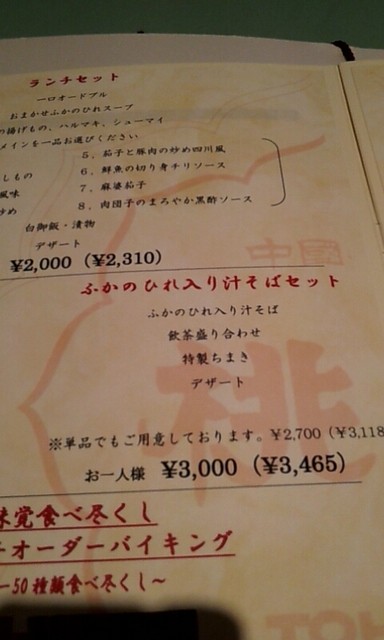 ランチセット
一口オードブル
おまかせふかのひれスープ
の揚げもの、ハルマキ、シューマイ
メインを一品お選びください
5. 茄子と豚肉の炒め四川風
しもの
6. 鮮魚の切り身チリソース
風味
7. 麻婆茄子
炒め
8. 肉団子のまろやか黒酢ソース
白御飯・漬物
デザート
¥2,000（¥2,310）
ふかのひれ入り汁そばセット
ふかのひれ入り汁そば
飲茶盛り合わせ
特製ちまき
デザート
※単品でもご用意しております。¥2,700（¥3,118
お一人様 ¥3,000（¥3,465）
味覚食べ尽くし
オーダーバイキング
ー50種類食べ尽くし～